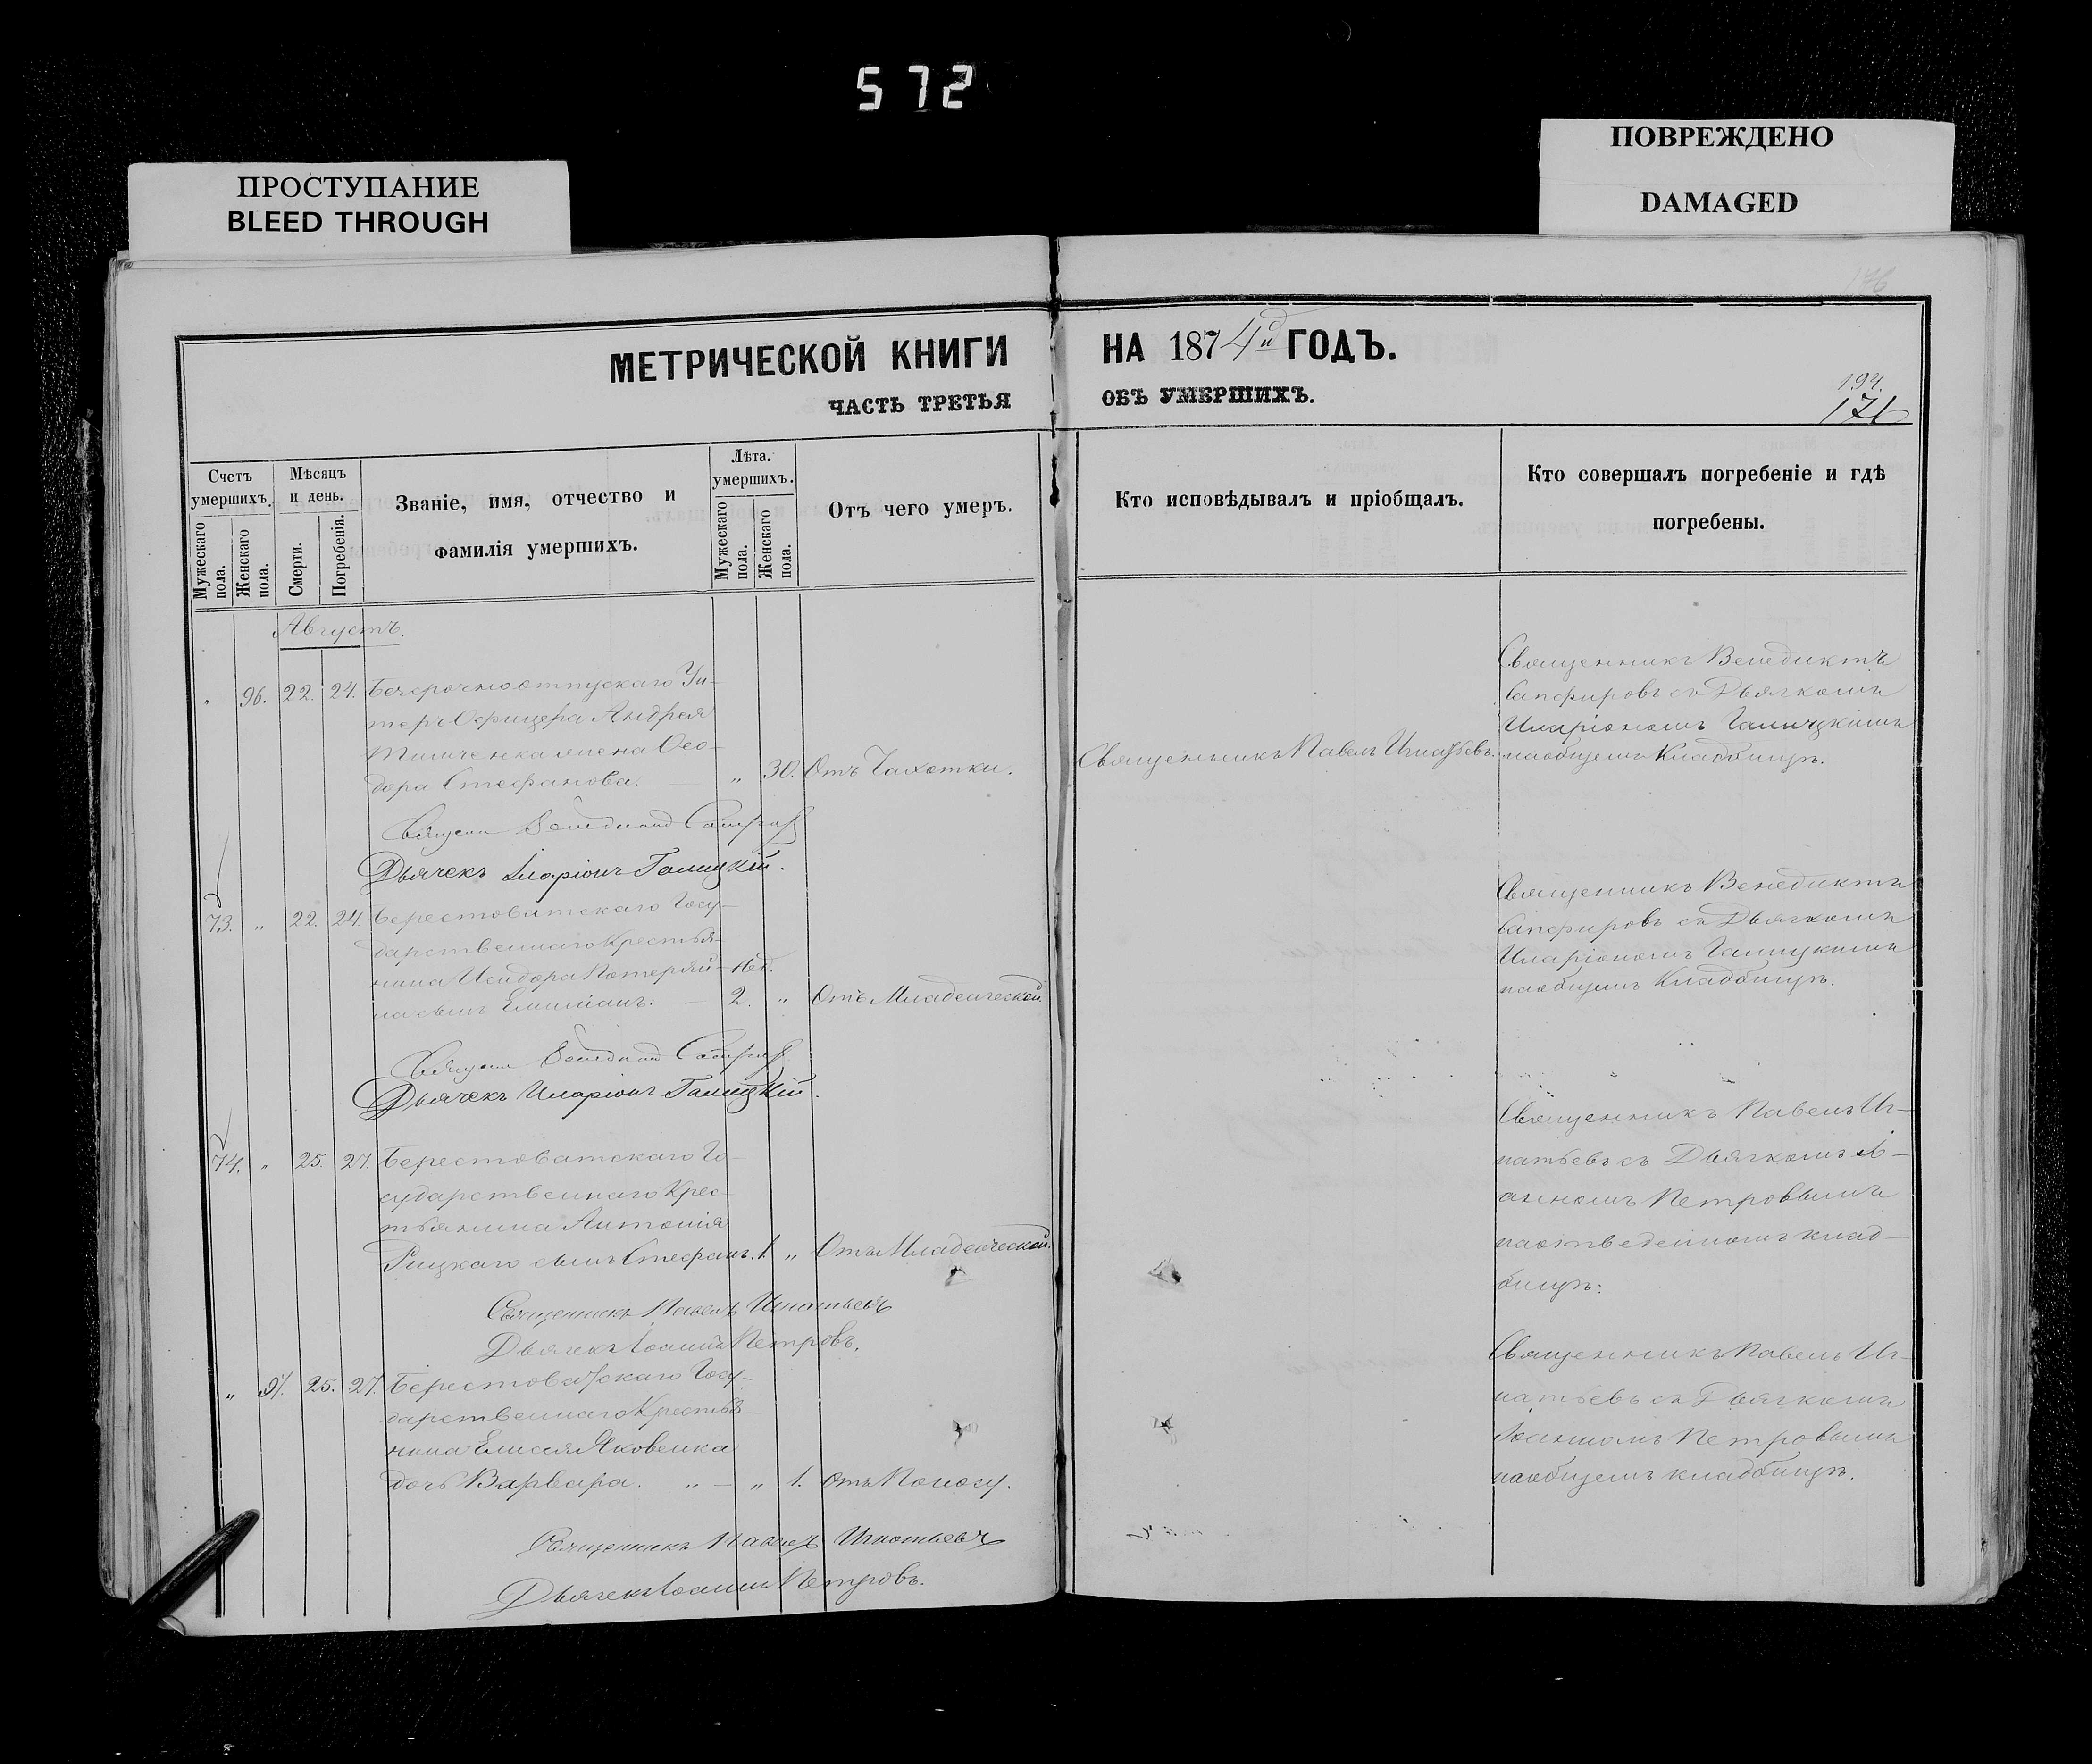 572
ПРОСТУПАНИЕ
BLEED THROUGH
ПОВРЕЖДЕНО
DAMAGED
176
МЕТРИЧЕСКОЙ КНИГИ НА 1874й ГОДЪ.
ЧАСТЬ ТРЕТЬЯ ОБЪ УМЕРШИХЪ.
194.
171
Счетъ умершихъ.
Мужескаго пола.
Женскаго пола.
Мѣсяцъ и день.
Смерти.
Погребенія.
Званіе, имя, отчество и
фамилія умершихъ.
Лѣта. умершихъ.
Мужескаго пола.
Женскаго пола.
Отъ чего умеръ.
Кто исповѣдывалъ и пріобщалъ.
Кто совершалъ погребеніе и гдѣ
погребены.
Августъ.
" 96. 22. 24. Безсрочноотпускаго Ун-
теръ Офицера Андрея
жена Ѳео-
дора Стефанова. " 30. Отъ Чахотки.
Священникъ Павелъ Игнатьевъ.
Священникъ Венедиктъ
Сапфировъ съ Дьячкомъ
Иларіономъ Галицкимъ
на общемъ Кладбищѣ.
Дьячекъ Иларіонъ Галицкій.
73. " 22. 24. Берестоватскаго Госу-
дарственнаго Крестья-
нина Исидора Потеряй- нед.
на сынъ Емиліанъ. 2. " Отъ Младенческой.
Священникъ Венедиктъ
Сапфировъ съ Дьячкомъ
Иларіономъ Галицкимъ
на общемъ Кладбищѣ.
Дьячекъ Иларіонъ Галицкій.
74. " 25. 27. Берестоватскаго Го-
сударственнаго Крес-
тьянина Антонія
Рицкаго сынъ Стефанъ. 1. " Отъ Младенческой.
Священникъ Павелъ Иг-
натьевъ съ Дьячкомъ Іо-
анномъ Петровымъ
на отведенномъ клад-
бищѣ.
Священникъ Павелъ Игнатьевъ
Дьячекъ Іоаннъ Петровъ.
" 97. 25. 27. Берестоватскаго Госу-
дарственнаго Крестья-
нина Елисея Яковенка
дочь Варвара. " — " 1. Отъ Поносу.
Священникъ Павелъ Иг-
натьевъ съ Дьячкомъ
Іоанномъ Петровымъ
на общемъ кладбищѣ.
Священникъ Павелъ Игнатьевъ
Дьячекъ Іоаннъ Петровъ.